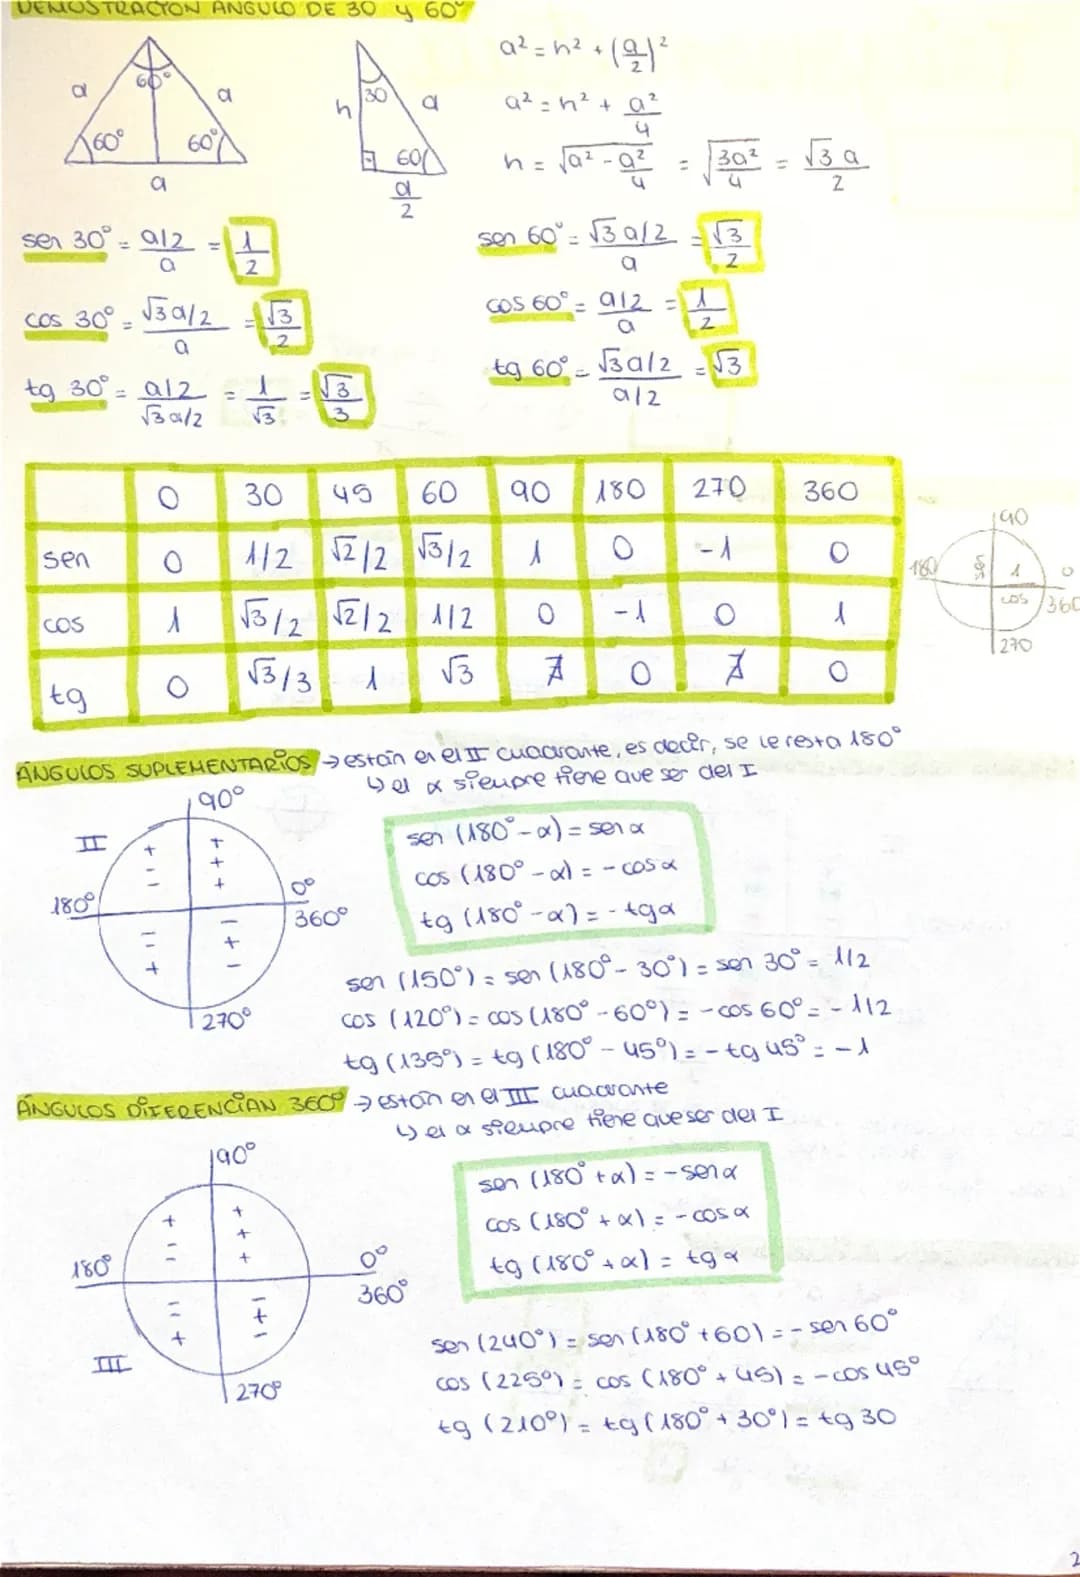 DEMOSTRACIÓN ÁNGULO DE 30 y 60°
a 60° a
60° 60°
a
h 30 a
60
a/2
a² = h² + (a/2)²
a² = h² + a²/4
h = √(a² - a²/4) = √(3a²/4) = √3 a/2
sen 30° = a/2 / a = 1/2
sen 60° = √3 a/2 / a = √3/2
cos 30° = √3 a/2 / a = √3/2
cos 60° = a/2 / a = 1/2
tg 30° = a/2 / √3 a/2 = 1/√3 = √3/3
tg 60° = √3 a/2 / a/2 = √3
0 30 45 60 90 180 270 360
sen 0 1/2 √2/2 √3/2 1 0 -1 0
cos 1 √3/2 √2/2 1/2 0 -1 0 1
tg 0 √3/3 1 √3 ∄ 0 ∄ 0
90
180 sen 1 0
cos 360
270
ÁNGULOS SUPLEMENTARIOS → están en el II cuadrante, es decir, se le resta 180°
↳ el α siempre tiene que ser del I
90°
II
+ +
- +
- +
180° 0°
360°
- -
- +
+ -
270°
sen (180° - α) = sen α
cos (180° - α) = - cos α
tg (180° - α) = - tg α
sen (150°) = sen (180° - 30°) = sen 30° = 1/2
cos (120°) = cos (180° - 60°) = - cos 60° = - 1/2
tg (135°) = tg (180° - 45°) = - tg 45° = - 1
ÁNGULOS DIFERENCIAN 360° → están en el III cuadrante
↳ el α siempre tiene que ser del I
90°
+ +
- +
- +
180° 0°
360°
- -
- +
+ -
III
270°
sen (180° + α) = - sen α
cos (180° + α) = - cos α
tg (180° + α) = tg α
sen (240°) = sen (180° + 60) = - sen 60°
cos (225°) = cos (180° + 45) = - cos 45°
tg (210°) = tg (180° + 30°) = tg 30
2